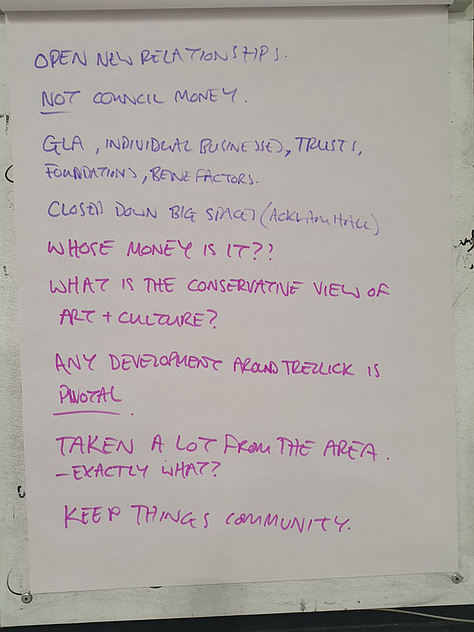 OPEN NEW RELATIONSHIPS.
NOT COUNCIL MONEY.
GLA, INDIVIDUAL BUSINESSES, TRUSTS,
FOUNDATIONS, BENEFACTORS.
CLOSED DOWN BIG SPACES (ACKLAM HALL)
WHOSE MONEY IS IT??
WHAT IS THE CONSERVATIVE VIEW OF
ART + CULTURE?
ANY DEVELOPMENT AROUND TRELLICK IS
PIVOTAL.
TAKEN A LOT FROM THE AREA.
- EXACTLY WHAT?
KEEP THINGS COMMUNITY.